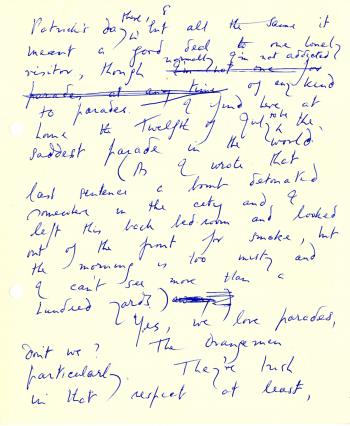 there, &
Patrick's day but all the same it
meant a good deal to one lonely
normally I'm not addicted
visitor, though I'm not one for
parades at any time of any kind
to parades. I find here at
home the Twelfth of July to be the
saddest parade in the world.
(As I wrote that
last sentence a bomb detonated
somewhere in the city and I
left this back bed-room and looked
out of the front for smoke, but
the morning is too misty and
I can't see more than a
hundred yards)
Yes, we love parades,
don't we? The Orangemen
particularly. They're Irish
in that respect at least,